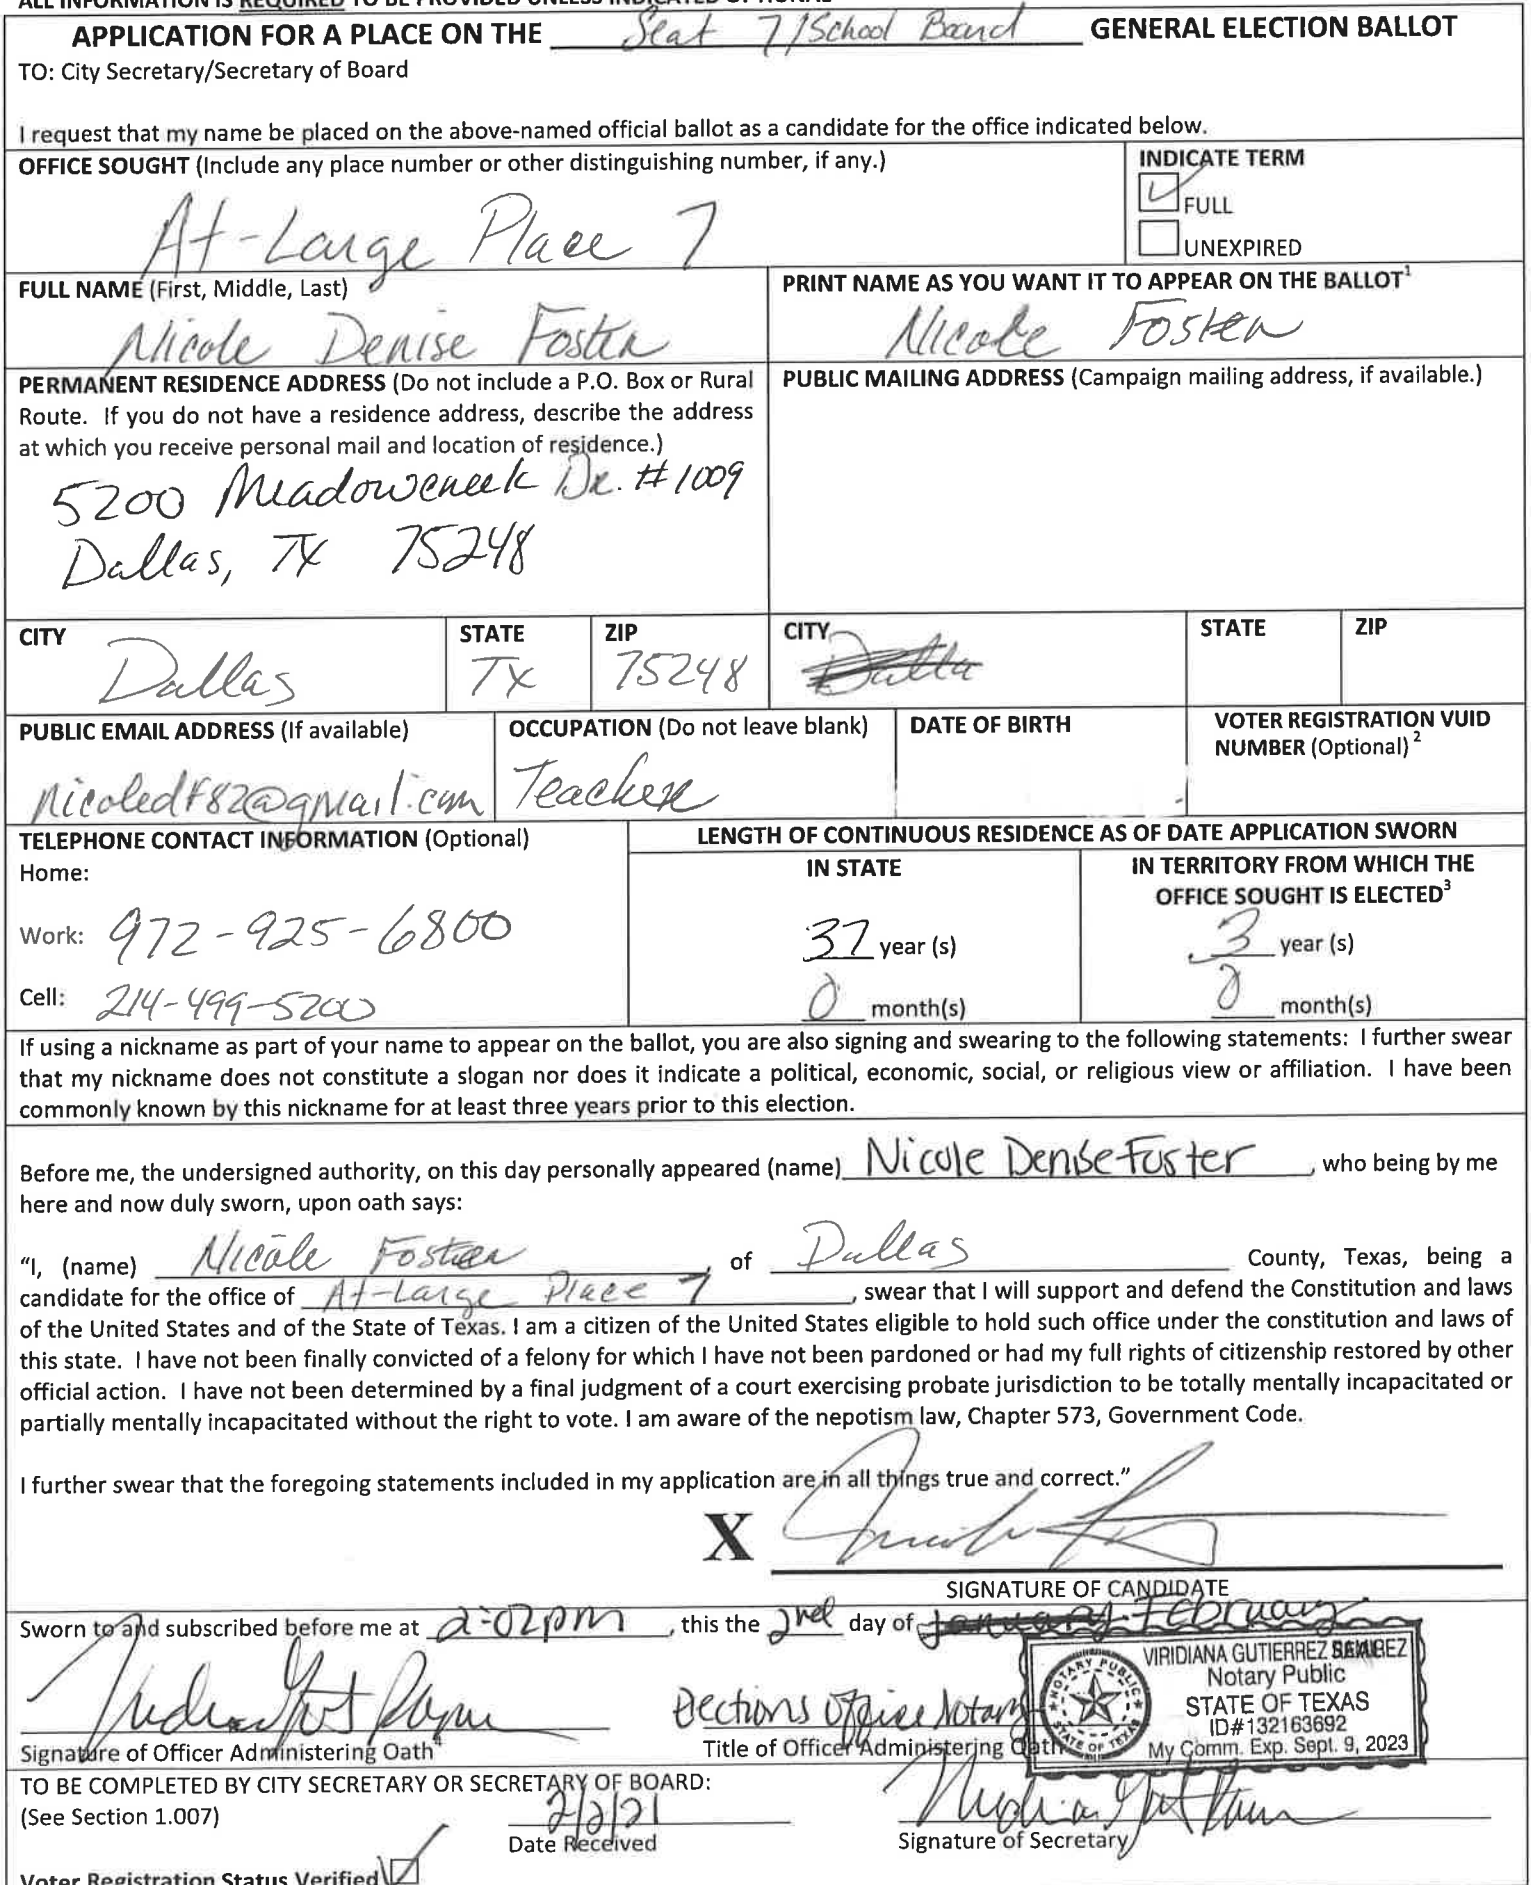 ALL INFORMATION IS REQUIRED TO BE PROVIDED UNLESS INDICATED OPTIONAL
APPLICATION FOR A PLACE ON THE Seat 7/School Board GENERAL ELECTION BALLOT
TO: City Secretary/Secretary of Board
I request that my name be placed on the above-named official ballot as a candidate for the office indicated below.
OFFICE SOUGHT (Include any place number or other distinguishing number, if any.)
At-Large Place 7
INDICATE TERM
FULL
UNEXPIRED
FULL NAME (First, Middle, Last)
Nicole Denise Foster
PRINT NAME AS YOU WANT IT TO APPEAR ON THE BALLOT1
Nicole Foster
PERMANENT RESIDENCE ADDRESS (Do not include a P.O. Box or Rural
Route. If you do not have a residence address, describe the address
at which you receive personal mail and location of residence.)
5200 Meadowcreek Dr. #1009
Dallas, TX 75248
PUBLIC MAILING ADDRESS (Campaign mailing address, if available.)
CITY
Dallas
STATE
TX
ZIP
75248
CITY
STATE
ZIP
PUBLIC EMAIL ADDRESS (If available)
nicoledf82@gmail.com
OCCUPATION (Do not leave blank)
Teacher
DATE OF BIRTH
VOTER REGISTRATION VUID
NUMBER (Optional) 2
TELEPHONE CONTACT INFORMATION (Optional)
Home:
Work: 972-925-6800
Cell: 214-499-5200
LENGTH OF CONTINUOUS RESIDENCE AS OF DATE APPLICATION SWORN
IN STATE
37 year (s)
0 month(s)
IN TERRITORY FROM WHICH THE
OFFICE SOUGHT IS ELECTED3
3 year (s)
0 month(s)
If using a nickname as part of your name to appear on the ballot, you are also signing and swearing to the following statements: I further swear
that my nickname does not constitute a slogan nor does it indicate a political, economic, social, or religious view or affiliation. I have been
commonly known by this nickname for at least three years prior to this election.
Before me, the undersigned authority, on this day personally appeared (name) Nicole Denise Foster, who being by me
here and now duly sworn, upon oath says:
"I, (name) Nicole Foster, of Dallas County, Texas, being a
candidate for the office of At-Large Place 7, swear that I will support and defend the Constitution and laws
of the United States and of the State of Texas. I am a citizen of the United States eligible to hold such office under the constitution and laws of
this state. I have not been finally convicted of a felony for which I have not been pardoned or had my full rights of citizenship restored by other
official action. I have not been determined by a final judgment of a court exercising probate jurisdiction to be totally mentally incapacitated or
partially mentally incapacitated without the right to vote. I am aware of the nepotism law, Chapter 573, Government Code.
I further swear that the foregoing statements included in my application are in all things true and correct."
X
SIGNATURE OF CANDIDATE
Sworn to and subscribed before me at 2:02pm, this the 2nd day of January February
VIRIDIANA GUTIERREZ RAMIREZ
Notary Public
STATE OF TEXAS
ID#132163692
My Comm. Exp. Sept. 9, 2023
NOTARY PUBLIC
STATE OF TEXAS
Elections Office Notary
Signature of Officer Administering Oath4
Title of Officer Administering Oath
TO BE COMPLETED BY CITY SECRETARY OR SECRETARY OF BOARD:
(See Section 1.007)
2/2/21
Date Received
Signature of Secretary
Voter Registration Status Verified